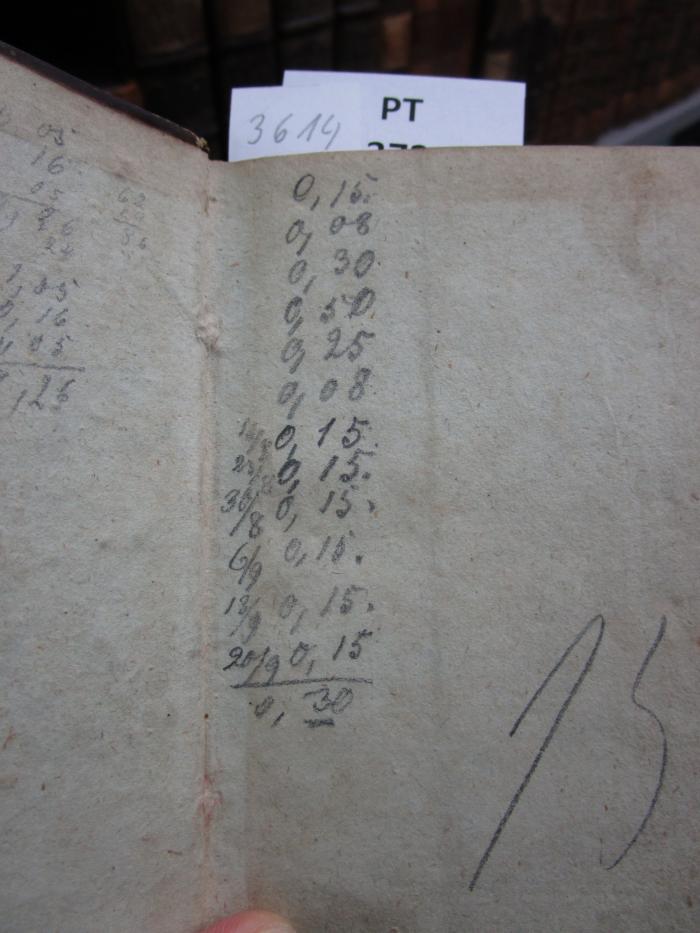 3614
PT
05
16
05
26
24
62
24
86
1,05
0,16
05
,26
0,15.
0,08
0,30
0,50
0,25
0,08
0,15.
0,15.
30/8 0,15.
6/9 0,15.
13/9 0,15.
20/9 0,15
0,30
15